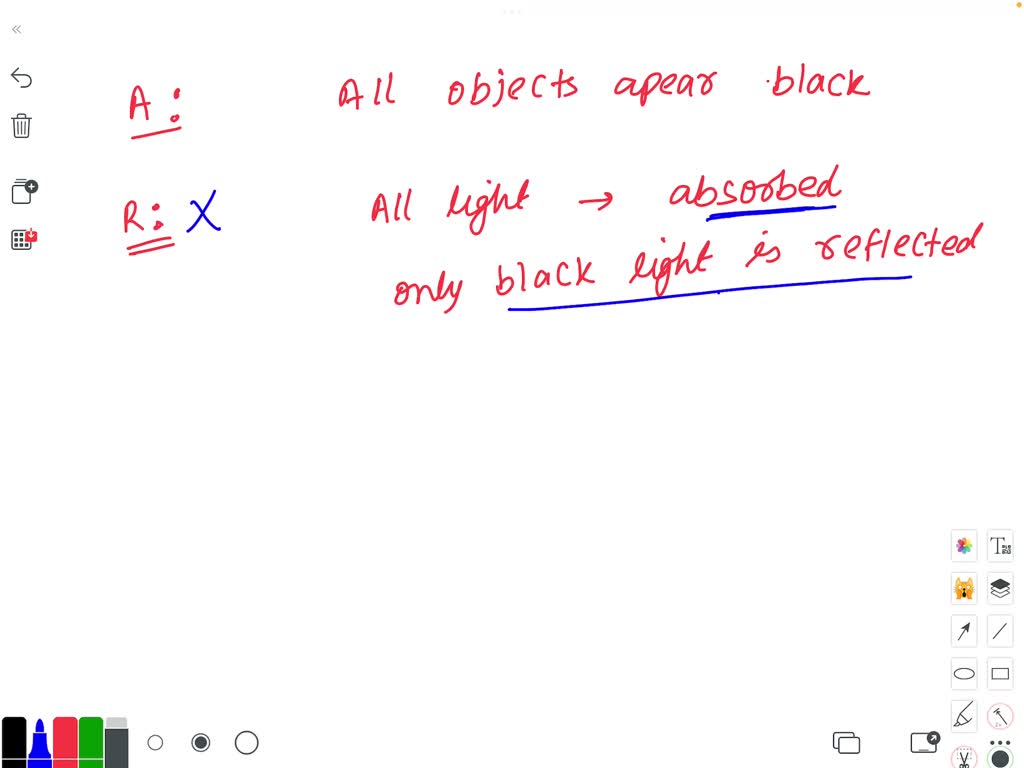 A : All objects apear black
R : X All light → absorbed
only black light is reflected